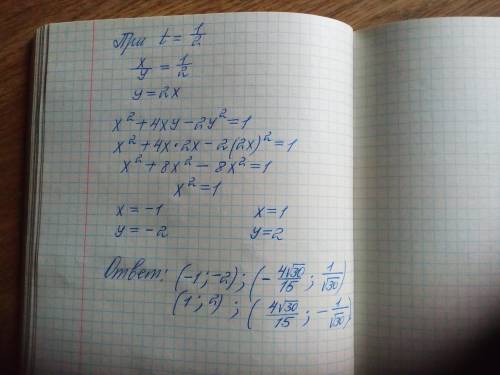 При t = 1/2
x/y = 1/2
y = 2x
x² + 4xy - 2y² = 1
x² + 4x·2x - 2(2x)² = 1
x² + 8x² - 8x² = 1
x² = 1
x = -1 x = 1
y = -2 y = 2
Ответ: (-1; -2); (-4√30/15; 1/√30)
(1; 2); (4√30/15; -1/√30)